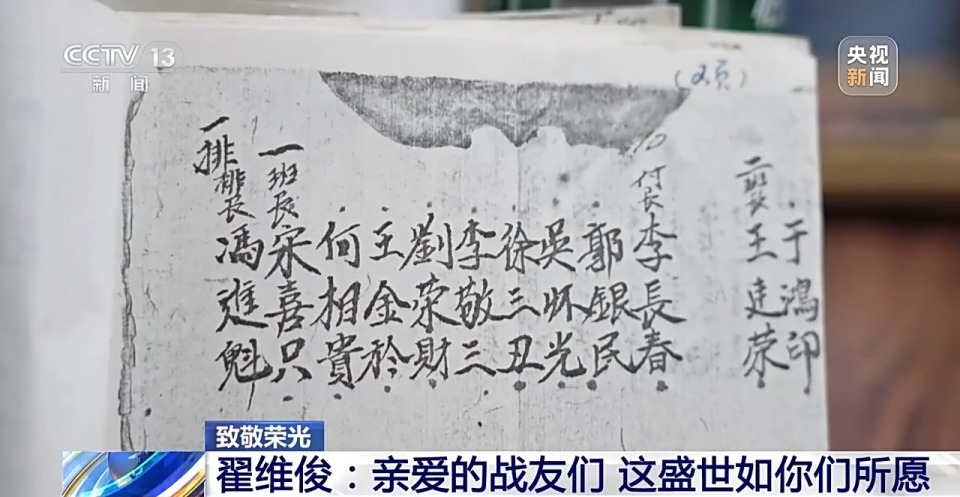 CCTV 13
新闻
央视
新闻
(2页)
一排排長
馮進魁
一班長
宋喜只
何相貴
王金於
劉荣財
李敬三
徐三丑
吳怀光
郭銀民
付長
李長春
二班長
王建荣
于鴻印
致敬荣光
翟维俊：亲爱的战友们 这盛世如你们所愿